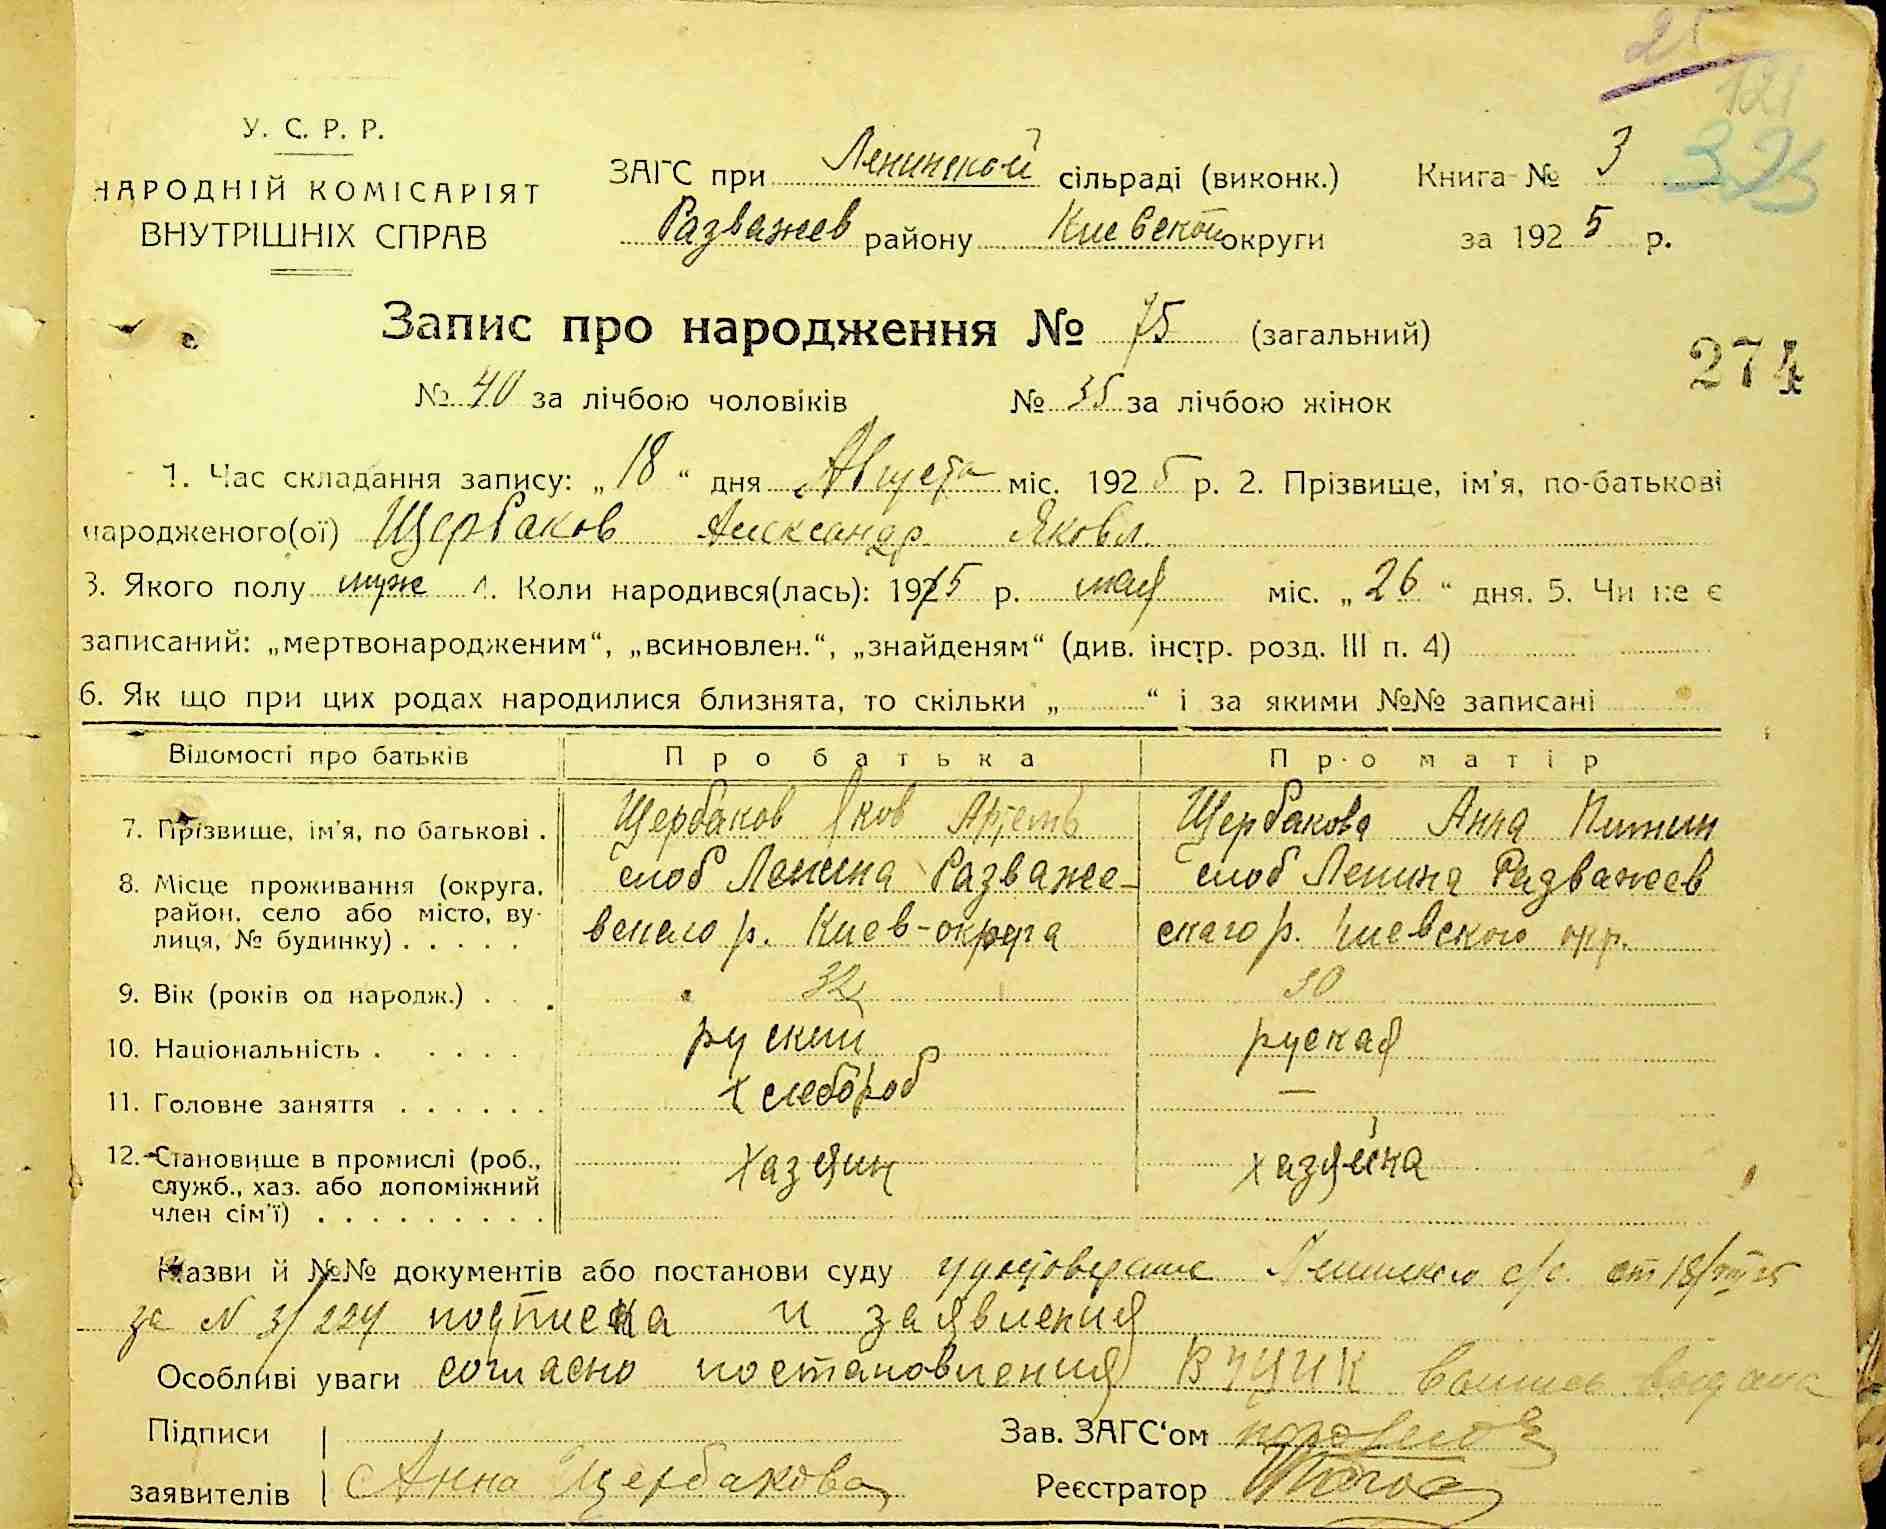 25
121
У. С. Р. Р.
НАРОДНІЙ КОМІСАРІЯТ
ВНУТРІШНІХ СПРАВ
ЗАГС при Ленинской сільраді (виконк.) Книга № 3
Разважев района Киевской округи за 1925 р.
Запис про народження № 75 (загальний)
274
№ 40 за лічбою чоловіків № 35 за лічбою жінок
1. Час складання запису: „18“ дня Августа міс. 1925 р. 2. Прізвище, ім'я, по-батькові
народженого(ої) Щербаков Александр Яковл.
3. Якого полу муж 4. Коли народився(лась): 1915 р. мая міс. „26“ дня. 5. Чи не є
записаний: „мертвонародженим“, „всиновлен.“, „знайденям“ (див. інстр. розд. III п. 4)
6. Як що при цих родах народилися близнята, то скільки „ “ і за якими №№ записані
Відомості про батьків Про батька Про матір
7. Прізвище, ім'я, по батькові . Щербаков Яков Артемь Щербакова Анна
8. Місце проживання (округа, слоб Ленина Разваже- слоб Ленина Разважев
район, село або місто, ву- вскаго р. Киев-округа скаго р. Киевского окр.
лиця, № будинку) . . . . .
9. Вік (років од народж.) . . 32 30
10. Національність . . . . . руский руская
11. Головне заняття . . . . . . хлебороб —
12. Становище в промислі (роб., хазяин хазяйка
служб., хаз. або допоміжний
член сім'ї) . . . . . . . . .
Назви й №№ документів або постанови суду удостоверение Ленинского с/с. от 18/VIII 25
за N 3/224 подписка и заявления
Особливі уваги согласно постановления ВУЦИК выдана
Підписи Зав. ЗАГС'ом
заявителів Анна Щербакова Реєстратор